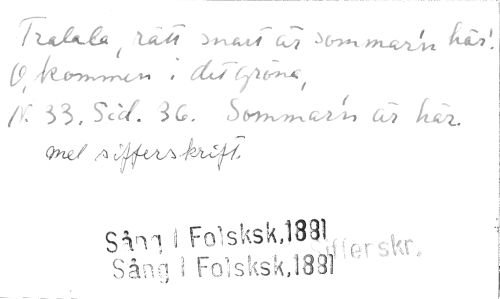 Tralala, rätt snart är sommar'n här!
O, kommen i det gröna,
N. 33. Sid. 36. Sommar'n är här.
med sifferskrift.
Sång i Folsksk,1881
sifferskr.
Sång i Folsksk,1881